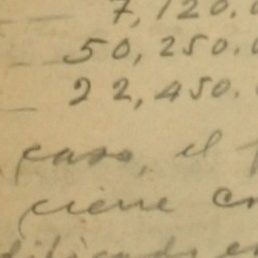 7,120.
50,250.
22,450.
caso, el
viene